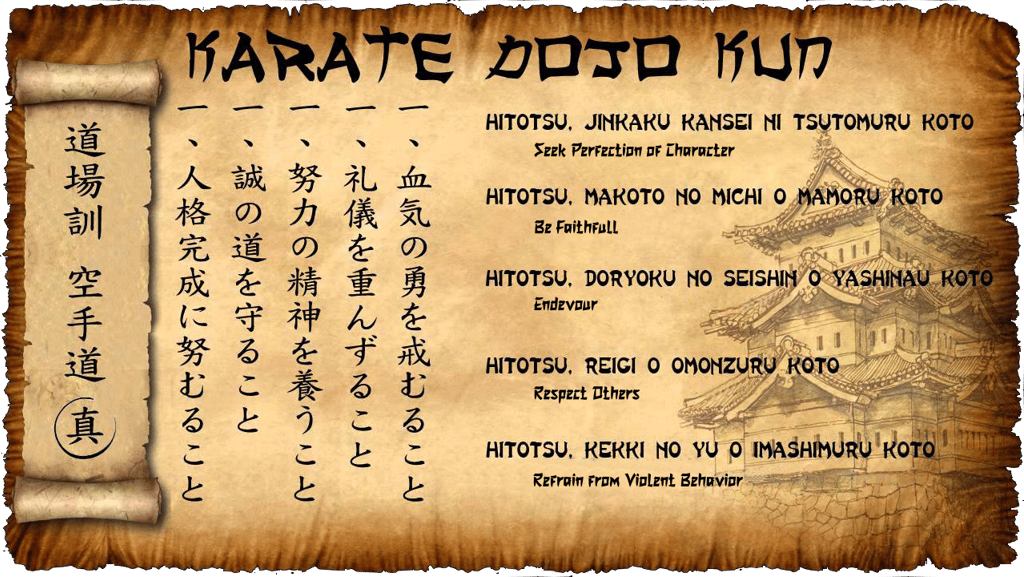 KARATE DOJO KUN
道場訓 空手道
真
一、人格完成に努むること
一、誠の道を守ること
一、努力の精神を養うこと
一、礼儀を重んずること
一、血気の勇を戒むること
HITOTSU, JINKAKU KANSEI NI TSUTOMURU KOTO
Seek Perfection of Character
HITOTSU, MAKOTO NO MICHI O MAMORU KOTO
Be Faithfull
HITOTSU, DORYOKU NO SEISHIN O YASHINAU KOTO
Endevour
HITOTSU, REIGI O OMONZURU KOTO
Respect Others
HITOTSU, KEKKI NO YU O IMASHIMURU KOTO
Refrain from Violent Behavior